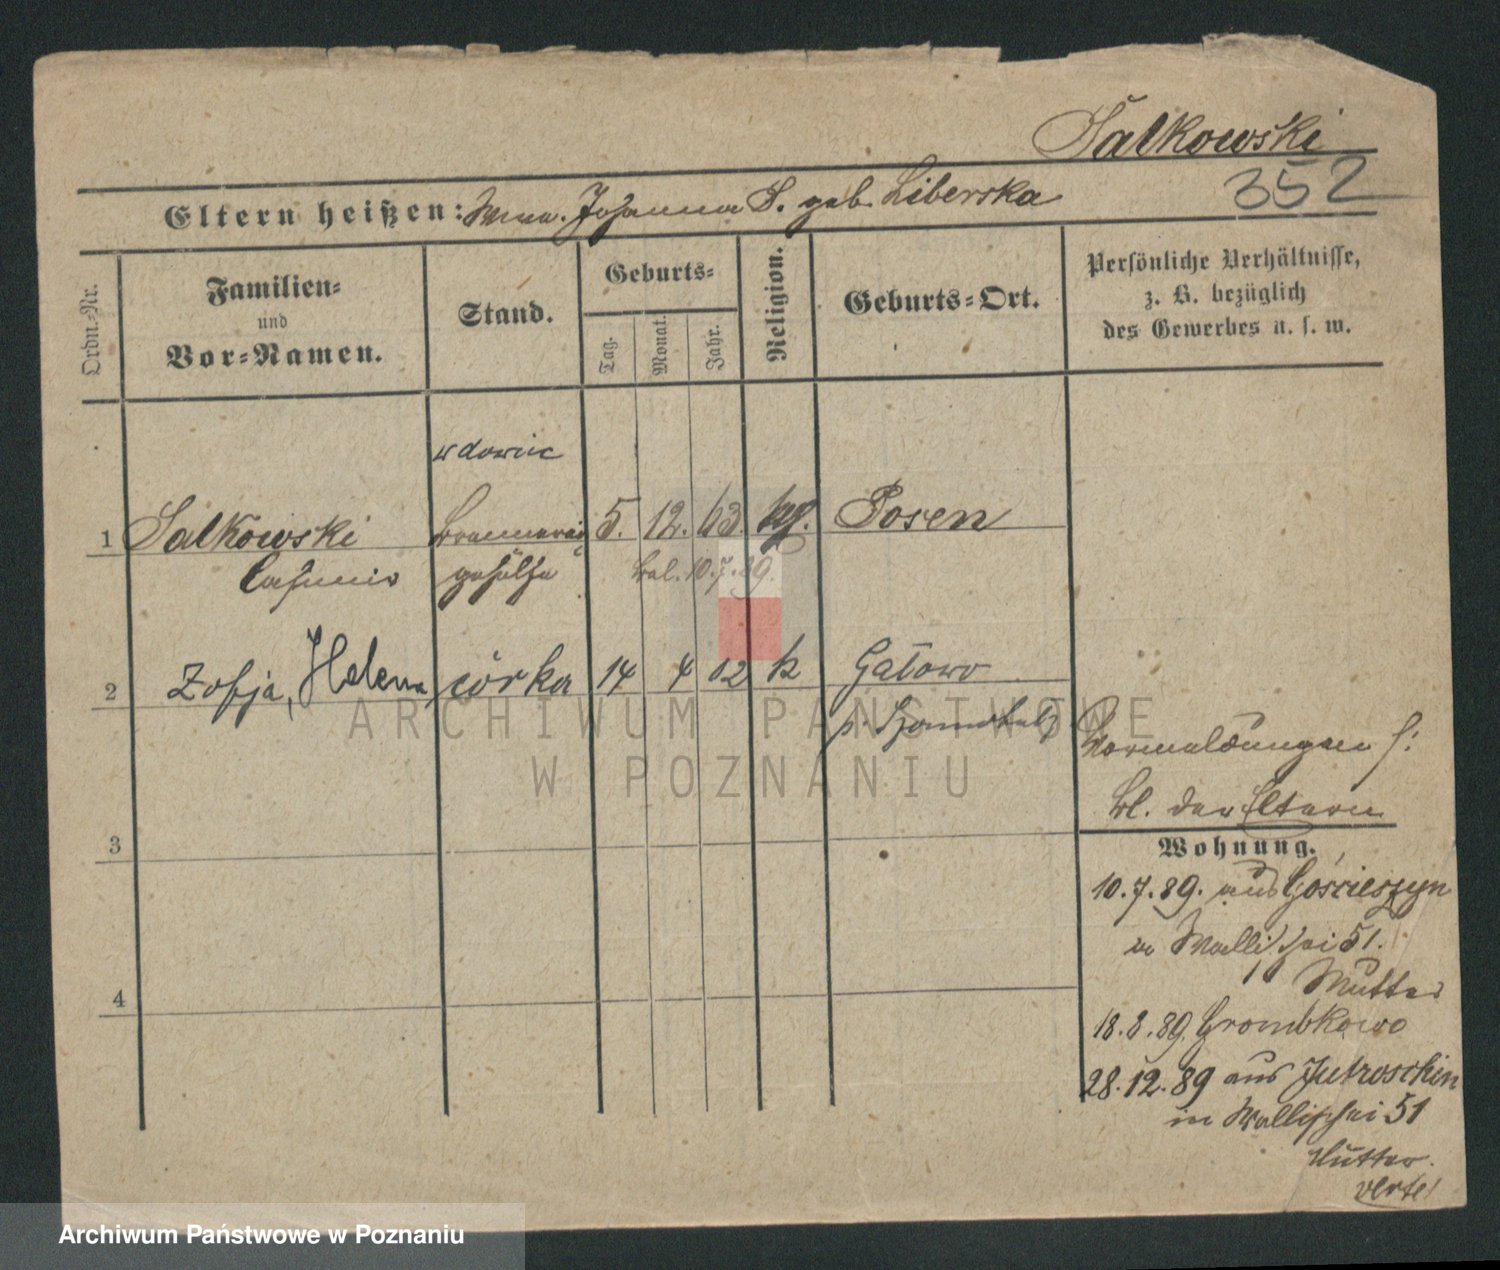 Salkowski
352
Eltern heißen: Wwe. Johanna S. geb. Liberska
Ordn.-Nr.
Familien-
und
Vor-Namen.
Stand.
Geburts-
Tag.
Monat.
Jahr.
Religion.
Geburts-Ort.
Persönliche Verhältnisse,
z. B. bezüglich
des Gewerbes u. s. w.
wdowiec
1 Salkowski Brennerei 5. 12. 63. kath. Posen
Casimir gehülfe 10.7.89.
2 Zofja, Helena córka 14 4 02 k Gałowo
p.
Vermeldungen s:
Bl. der Eltern
3
Wohnung.
10.7.89. aus Gościeszyn
in Wallischei 51.
Mutter
18.8.89. Grombkowo
28.12.89 aus Jutroschin
in Wallischei 51
Mutter.
verte!
4
ARCHIWUM PAŃSTWOWE
W POZNANIU
Archiwum Państwowe w Poznaniu